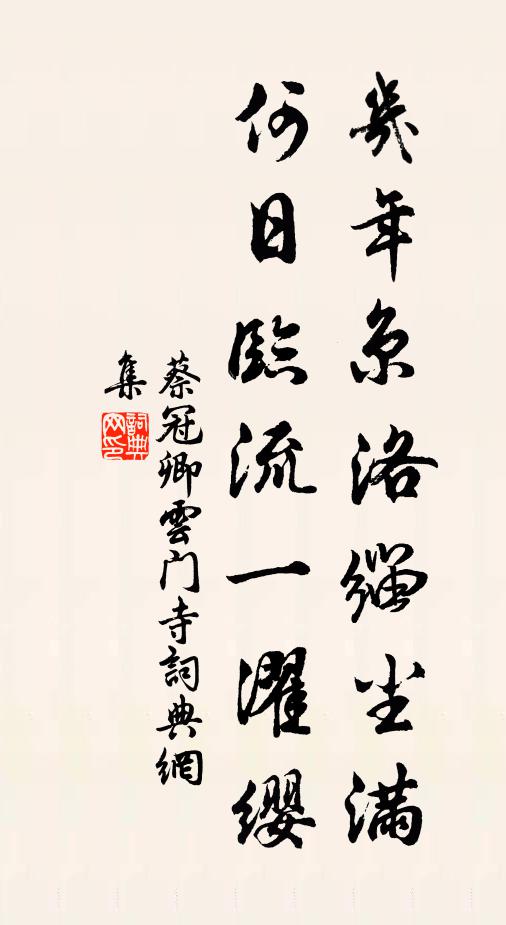 幾年京洛緇尘满
何日臨流一濯纓
蔡冠卿雲门寺詞典網
集
詞典
网印